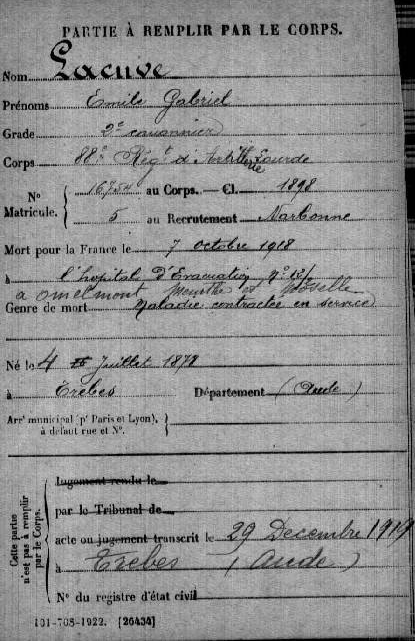 PARTIE À REMPLIR PAR LE CORPS.
Nom Lacuve
Prénoms Emile Gabriel
Grade 2e canonnier
Corps 88e Régt d'Artillerie Lourde
N° Matricule. { 16754 au Corps. — Cl. 1898
5 au Recrutement Narbonne
Mort pour la France le 7 octobre 1918
à l'hopital D'Evacuation n° 12/
a Omelmont Meurthe et Moselle
Genre de mort Maladie contractée en service
Né le 4 Juillet 1878
à Trèbes Département (Aude)
Arrt municipal (pr Paris et Lyon), }
à défaut rue et N°.
Cette partie n'est pas à remplir par le Corps.
Jugement rendu le
par le Tribunal de
acte ou jugement transcrit le 29 Decembre 1919
à Trebes (Aude)
N° du registre d'état civil
101-708-1922. [26434]